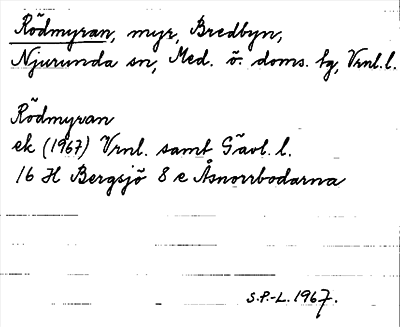 Rödmyran, myr, Bredbyn,
Njurunda sn, Med. ö. doms. fg, Vrnl. l.
Rödmyran
ek (1967) Vrnl. samt Gävl. l.
16 H Bergsjö 8 e Åsnorrbodarna
S.P.-L. 1967.